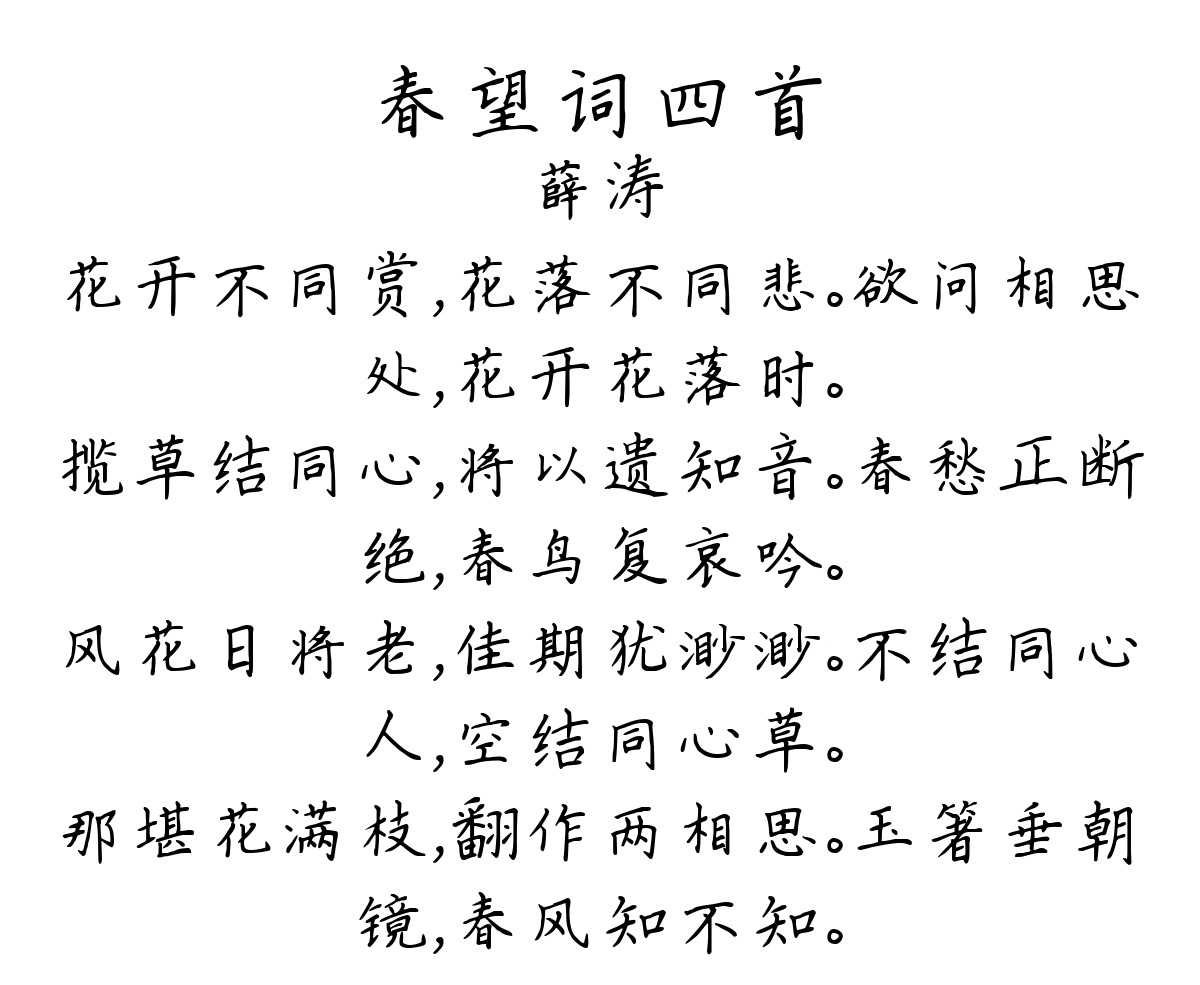 春望词四首
薛涛
花开不同赏,花落不同悲。欲问相思
处,花开花落时。
揽草结同心,将以遗知音。春愁正断
绝,春鸟复哀吟。
风花日将老,佳期犹渺渺。不结同心
人,空结同心草。
那堪花满枝,翻作两相思。玉箸垂朝
镜,春风知不知。